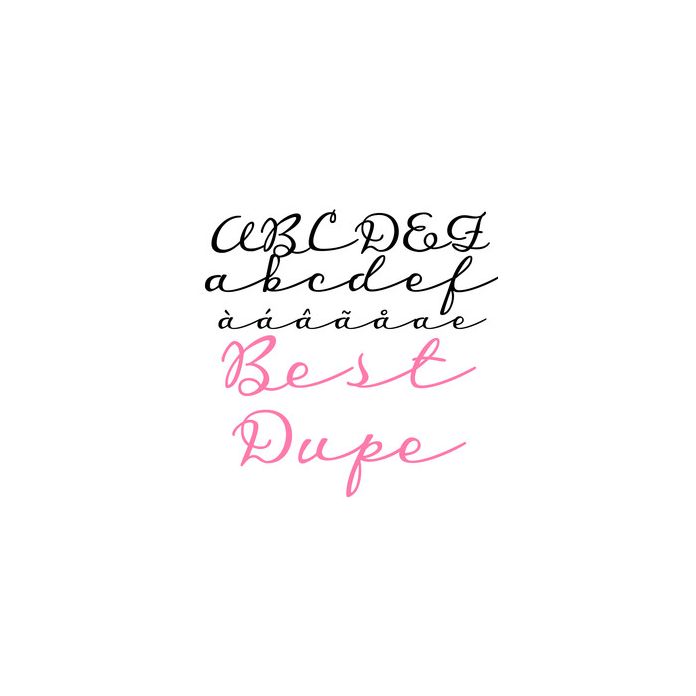 ABCDEF
abcdef
àáâãåae
Best
Dupe